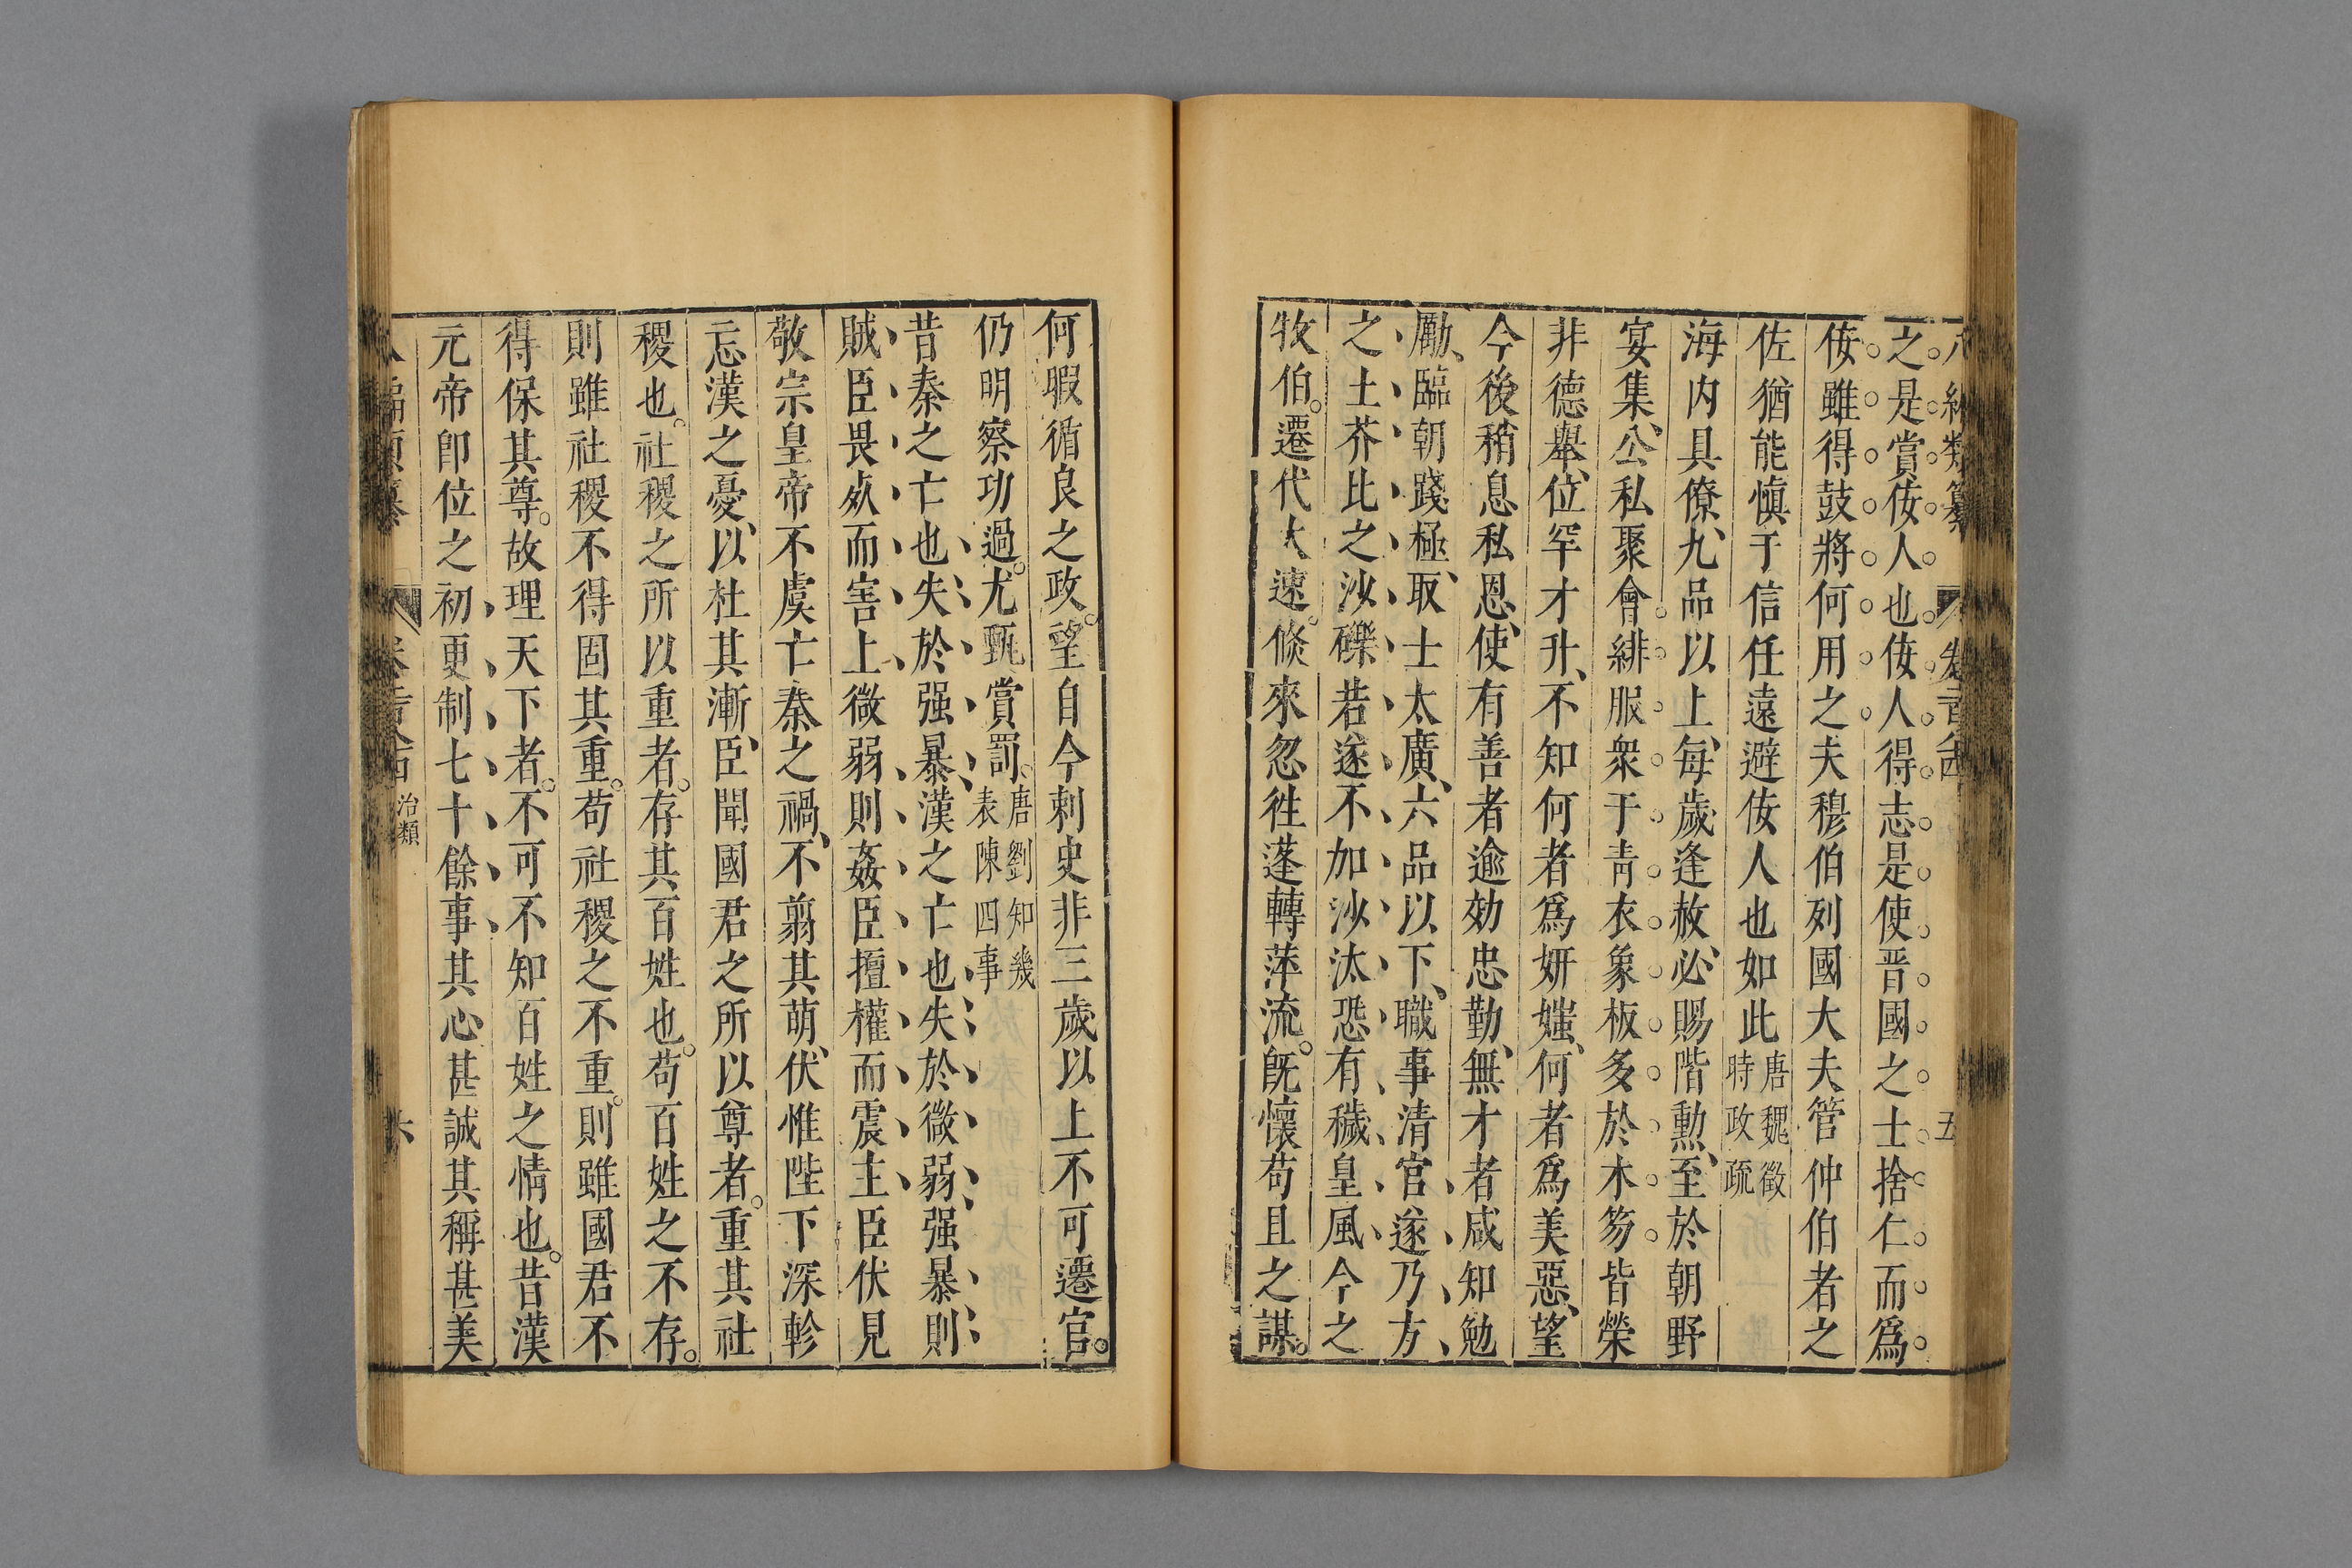 八編類纂 卷 五
之是賞佞人也佞人得志是使晋國之士捨仁而爲
佞雖得鼓將何用之夫穆伯列國大夫管仲伯者之
佐猶能愼于信任遠避佞人也如此唐魏徵時政疏
海内具僚九品以上每歲逢赦必賜階勲至於朝野
宴集公私聚會緋服衆于青衣象板多於木笏皆榮
非德舉位罕才升不知何者爲妍媸何者爲美惡望
今後稍息私恩使有善者逾効忠勤無才者咸知勉
勵臨朝踐極取士太廣六品以下職事清官遂乃方
之土芥比之沙礫若遂不加沙汰恐有穢皇風今之
牧伯遷代太速倏來忽徃蓬轉萍流旣懷苟且之謀
何暇循良之政望自今刺史非三歲以上不可遷官
仍明察功過尤甄賞罰唐劉知幾表陳四事
昔秦之亡也失於强暴漢之亡也失於微弱强暴則
賊臣畏死而害上微弱則姦臣擅權而震主臣伏見
敬宗皇帝不虞亡秦之禍不翦其萌伏惟陛下深軫
忘漢之憂以杜其漸臣聞國君之所以尊者重其社
稷也社稷之所以重者存其百姓也苟百姓之不存
則雖社稷不得固其重苟社稷之不重則雖國君不
得保其尊故理天下者不可不知百姓之情也昔漢
元帝卽位之初更制七十餘事其心甚誠其稱甚美
八編類纂 卷 治類 六